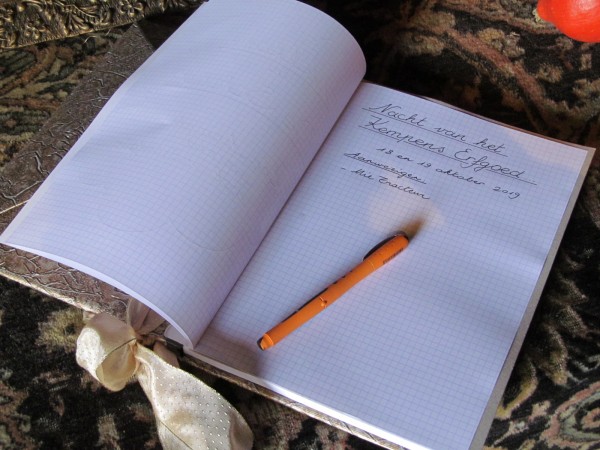 Nacht van het
Kempens Erfgoed
18 en 19 oktober 2019
Aanwezigen
- Mie